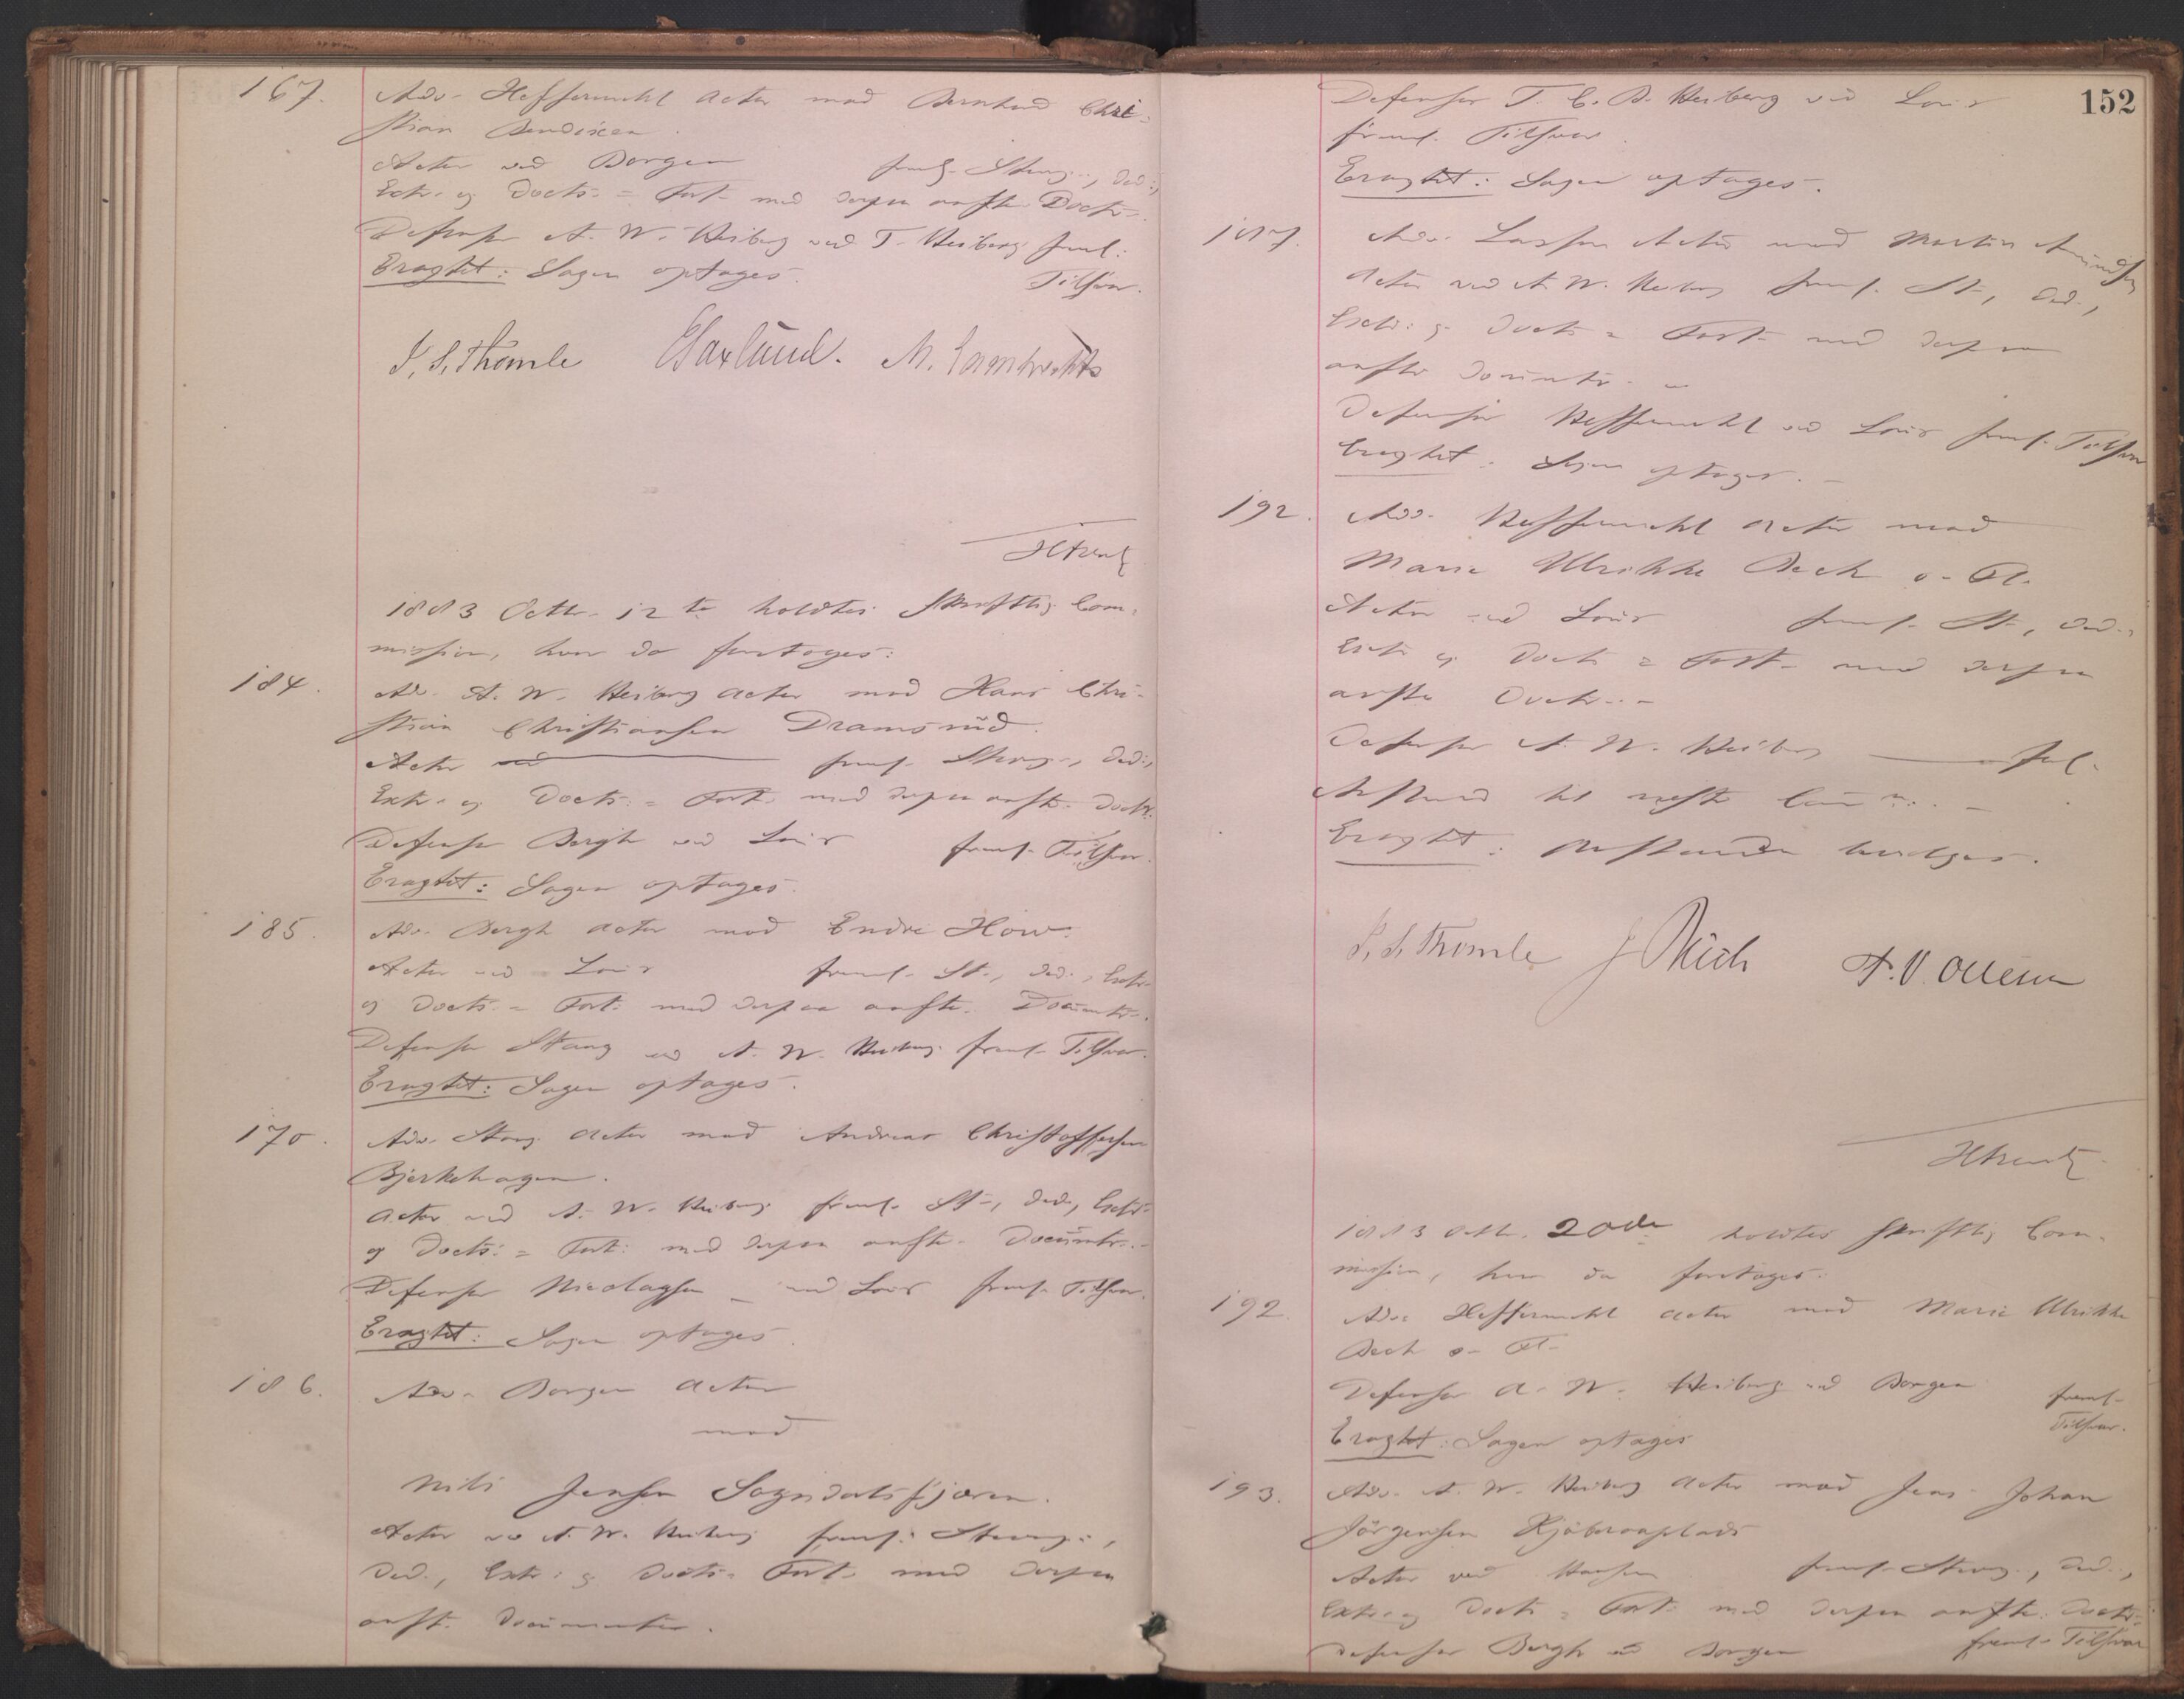 167. Adv. Heffermehl Actor mod Bernhard Chri-
stian Bendixen.
Actor ved Borgen freml. Stevng., Ded.,
Extr. og Docts. = Fort. med derpaa anfte Doctr.
Defensor A. W. Heiberg ved T. Heiberg freml.
Eragtet: Sagen optages. Tilsvar.
S. S. Thomle E Saxlund. M.
1883 Octb. 12te holdtes skriftlig Com-
mission, hvor da foretoges:
184. Adv. A. W. Heiberg Actor mod Hans Chri-
stian Christiansen Dramsrud.
Actor freml. Stevng., Ded.,
Extr. og Docts. = Fort. med derpaa anfte. Doctr.
Defensor Bergh ved Lous freml. Tilsvar.
Eragtet: Sagen optages.
185. Adv. Bergh Actor mod Endre How.
Actor ved Lous freml. St., Ded., Extr.
og Docts. = Fort. med derpaa anfte. Documtr.
Defensor Stang ved A. W. Heiberg freml. Tilsvar.
Eragtet: Sagen optages.
170. Adv. Stang Actor mod Andreas Christoffersen
Bjerkehagen.
Actor ved A. W. Heiberg freml. St., Ded., Extr.
og Docts. = Fort. med derpaa anfte. Documtr.
Defensor Nicolaysen ved Lous freml. Tilsvar.
Eragtet: Sagen optages.
186. Adv. Borgen Actor
mod
Nils Jensen Sogndalsfjæren.
Actor ved A. W. Heiberg freml. Stevng.,
Ded., Extr. og Docts. = Fort. med derpaa
anft. Documenter.
152
Defensor T. C. B. Heiberg ved Lous
freml. Tilsvar.
Eragtet: Sagen optages.
187. Adv. Lassen Actor mod Martin Amundsen
Actor ved A. W. Heiberg freml. St., Ded.,
Extr. og Docts = Fort. med derpaa
anfte Documtr.
Defensor Heffermehl ved Lous freml. Tilsvar
Eragtet: Sagen optages.
192. Adv. Heffermehl Actor mod
Marie Ulrikke Bech o. Fl.
Actor ved Lous freml. St., Ded.,
Extr og Docts = Fort. med derpaa
anfte Doctr.
Defensor A. W. Heiberg
Anstand til næste
Eragtet: Anstanden bevilges.
S. S. Thomle J
1883 Octb. 20de holdtes skriftlig Com-
mission, hvor da foretoges:
192. Adv. Heffermehl Actor mod Marie Ulrikke
Bech o. Fl.
Defensor A. W. Heiberg ved Borgen freml.
Tilsvar.
Eragtet: Sagen optages
193. Adv. A. W. Heiberg Actor mod Jens Johan
Jörgensen
Actor ved freml. Stevng., Ded.,
Extr. og Docts = Fort. med derpaa anfte. Doctr.
Defensor Bergh ved Borgen freml. Tilsvar